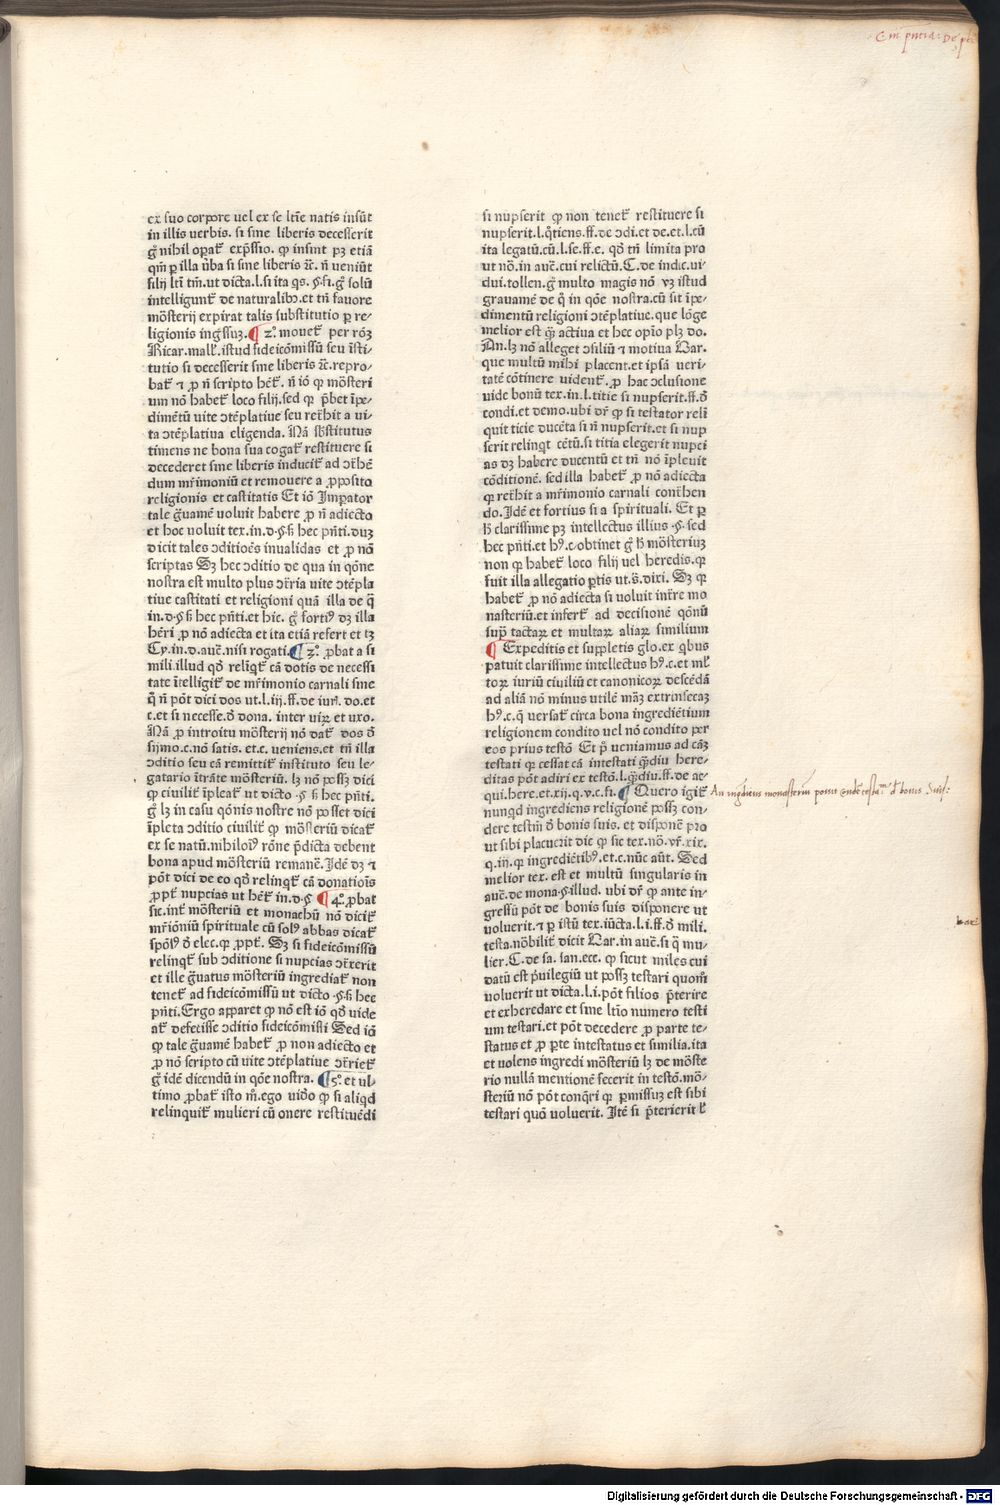 ex suo corpore uel ex se ltīe natis insūt
in illis uerbis. si sine liberis decesserit
nihil opat᷑ exp̄ssio. ꝙ insint pꝫ etiā
qm̄ ꝑ illa ūba si sine liberis ⁊c̄. n̄ ueniūt
filij ltī tm̄. ut dicta.l.si ita qs. §.fi.gͦ solū
intelligunt᷑ de naturalibꝰ.et tn̄ fauore
mōsterij expirat talis substitutio ꝑ re⸗
ligionis ing̃ssuꝫ.¶ 2ͦ. mouet᷑ per rōꝫ
Ricar.mall᷑.istud fideicōmissū seu īsti⸗
tutio si decesserit sine liberis ⁊c̄.repro⸗
bat᷑ ⁊ ꝓ n̄ scripto hēt᷑. n̄ iō ꝙ mōsteri
um nō habet᷑ loco filij.sed ꝙ p̄bet īpe⸗
dimētū uite ꝯtēplatiue seu ret̄hit a ui⸗
ta ꝯtēplatiua eligenda. Nā s̄bstitutus
timens ne bona sua cogat᷑ restituere si
decederet sine liberis inducit᷑ ad ꝯt̄hē
dum mr̄imoniū et remouere a ꝓposito
religionis et castitatis Et iō Imꝑator
tale g̃uamē uoluit habere ꝓ n̄ adiecto
et hoc uoluit tex.in.d.§.s̄ hec pn̄ti.duꝫ
dicit tales ꝯditioēs inualidas et ꝓ nō
scriptas Sꝫ hec ꝯditio de qua in qōne
nostra est multo plus ꝯt̄ria uite ꝯtēpla
tiue castitati et religioni quā illa de q̄
in.d.§.s̄ hec pn̄ti.et hic. gͦ fortiꝰ dꝫ illa
hēri ꝓ nō adiecta et ita etiā refert et tꝫ
Cy.in.d.auc̄.nisi rogati.¶ 3ͦ. ꝓbat a si
mili.illud qd̄ relīqt᷑ cā dotis de necessi
tate ītelligit᷑ de mr̄imonio carnali sine
q̄ n̄ pōt dici dos ut.l.iij.ff.de iur̄. do.et
c.et si necesse.d̄ dona. inter uiꝝ et uxo.
Nā ꝓ introitu mōsterij nō dat᷑ dos d̄
sijmo.c.nō satis. et.c. ueniens.et tn̄ illa
ꝯditio seu cā remittit᷑ instituto seu le⸗
gatario ītrāte mōsteriū. lꝫ nō possꝫ dici
ꝙ ciuilit᷑ īpleat᷑ ut dicto .§ s̄ hec pn̄ti.
gͦ lꝫ in casu qōnis nostre nō posset dici
īpleta ꝯditio ciuilit᷑ ꝙ mōsteriū dicat᷑
ex se natū.nihiloiꝰ rōne p̄dicta debent
bona apud mōsteriū remanē. Idē dꝫ ⁊
pōt dici de eo qd̄ relinqt᷑ cā donatiōis
ꝓpt᷑ nupcias ut hēt᷑ in.d.§ ¶ 4ͦ. ꝓbat
sic.int᷑ mōsteriū et monachū nō dicit᷑
mr̄imōniū spirituale cū solꝰ abbas dicat᷑
spōsꝰ d̄ elec.ꝙ ꝓpt᷑. Sꝫ si fideicōmissū
relinqt᷑ sub ꝯditione si nupcias ꝯt̄xerit
et ille g̃uatus mōsteriū ingrediat᷑ non
tenet᷑ ad fideicōmissū ut dicto .§.s̄ hec
pn̄ti.Ergo apparet ꝙ nō est iō qd̄ uide
at᷑ defecisse ꝯditio fideicōmissi Sed iō
ꝙ tale g̃uamē habet᷑ ꝓ non adiecto et
ꝓ nō scripto cū uite ꝯtēplatiue ꝯt̄riet᷑
gͦ idē dicendū in qōne nostra. ¶5ͦ. et ul⸗
timo ꝓbat᷑ isto mͦ.ego uideo ꝙ si aliqd
relinquit᷑ mulieri cū onere restituēdi
si nupserit ꝙ non tenet᷑ restituere si
nupserit.l.q̄tiens.ff.de ꝯdi.et de.et.l.cū
ita legatū.cū.l.se.ff.e. qd̄ tn̄ limita pro
ut nō.in auc̄.cui relictū.C.de indic.ui⸗
dui.tollen.gͦ multo magis nō uꝫ istud
grauamē de q̄ in qōe nostra.cū sit īpe⸗
dimentū religioni ꝯtēplatiue.que lōge
melior est q̄ꝫ actiua et hec opio plꝫ do.
An.lꝫ nō alleget ꝯsiliū ⁊ motiua Bar.
que multū mihi placent.et ipsā ueri⸗
tatē cōtinere uident᷑. ꝓ hac ꝯclusione
uide bonū tex.in.l.titie si nupserit.ff.d̄
condi.et demo.ubi dr̄ ꝙ si testator reli
quit ticie ducēta si n̄ nupserit.et si nup
serit relinqt cētū.si titia elegerit nupci
as dꝫ habere ducentū et tn̄ nō īpleuit
cōditionē. sed illa habet᷑ ꝓ nō adiecta
ꝙ ret̄hit a mr̄imonio carnali cont̄hen
do.Idē et fortius si a spirituali. Et ꝑ
h̄ clarissime pꝫ intellectus illius .§.sed
hec pn̄ti.et hꝰ.c.obtinet gͦ h̄ mōsteriuꝫ
non ꝙ habet᷑ loco filij uel heredis.ꝙ
fuit illa allegatio ꝑtis ut.s̄.dixi. Sꝫ ꝙ
habet᷑ ꝓ nō adiecta si uoluit int̄re mo
nasteriū.et infert᷑ ad decisionē qōnū
sup̄ tactaꝝ et multaꝝ aliaꝝ similium
¶ Expeditis et suppletis glo.ex qbus
patuit clarissime intellectus hꝰ.c.et ml᷑
toꝝ iuriū ciuiliū et canonicoꝝ descēdā
ad aliā nō minus utilē mā3 extrinsecaꝫ
hꝰ.c.q̄ uersat᷑ circa bona ingrediētium
religionem condito uel nō condito per
eos prius testō Et p̄ ueniamus ad cāꝫ
testati ꝙ cessat cā intestati q̄diu here⸗
ditas pōt adiri ex testō.l.q̄diu.ff.de ac⸗
qui.here.et.xij.q.v.c.fi.¶ Quero igit᷑
nunqd ingrediens religionē possꝫ con⸗
dere testm̄ d̄ bonis suis. et disponē pro
ut sibi placuerit dic ꝙ sic tex.nō.vr̄.xix.
q.iij.ꝙ ingrediētibꝰ.et.c.nūc aūt. Sed
melior tex. est et multū singularis in
auc̄.de mona.§.illud. ubi dr̄ ꝙ ante in⸗
gressū pōt de bonis suis disponere ut
uoluerit.⁊ ꝑ istū tex.iūcta.l.i.ff.d̄ mili.
testa.nōbilit᷑ dicit Bar.in auc̄.si q̄ mu⸗
lier.C.de sa. san.ecc. ꝙ sicut miles cui
datū est p̄uilegiū ut possꝫ testari quom̄
uoluerit ut dicta.l.i.pōt filios p̄terire
et exheredare et sine ltīo numero testi
um testari.et pōt decedere ꝓ parte te⸗
status et ꝓ ꝑte intestatus et similia.ita
et uolens ingredi mōsteriū lꝫ de mōste
rio nullā mentionē fecerit in testō.mō⸗
steriū nō pōt conq̄ri ꝙ ꝑmissuꝫ est sibi
testari quō uoluerit. Itē si p̄terierit l᷑
An ing̃diens monasterium potuit ꝯndē testam̄ d̄ bonis suis:
Digitalisierung gefördert durch die Deutsche Forschungsgemeinschaft - DFG